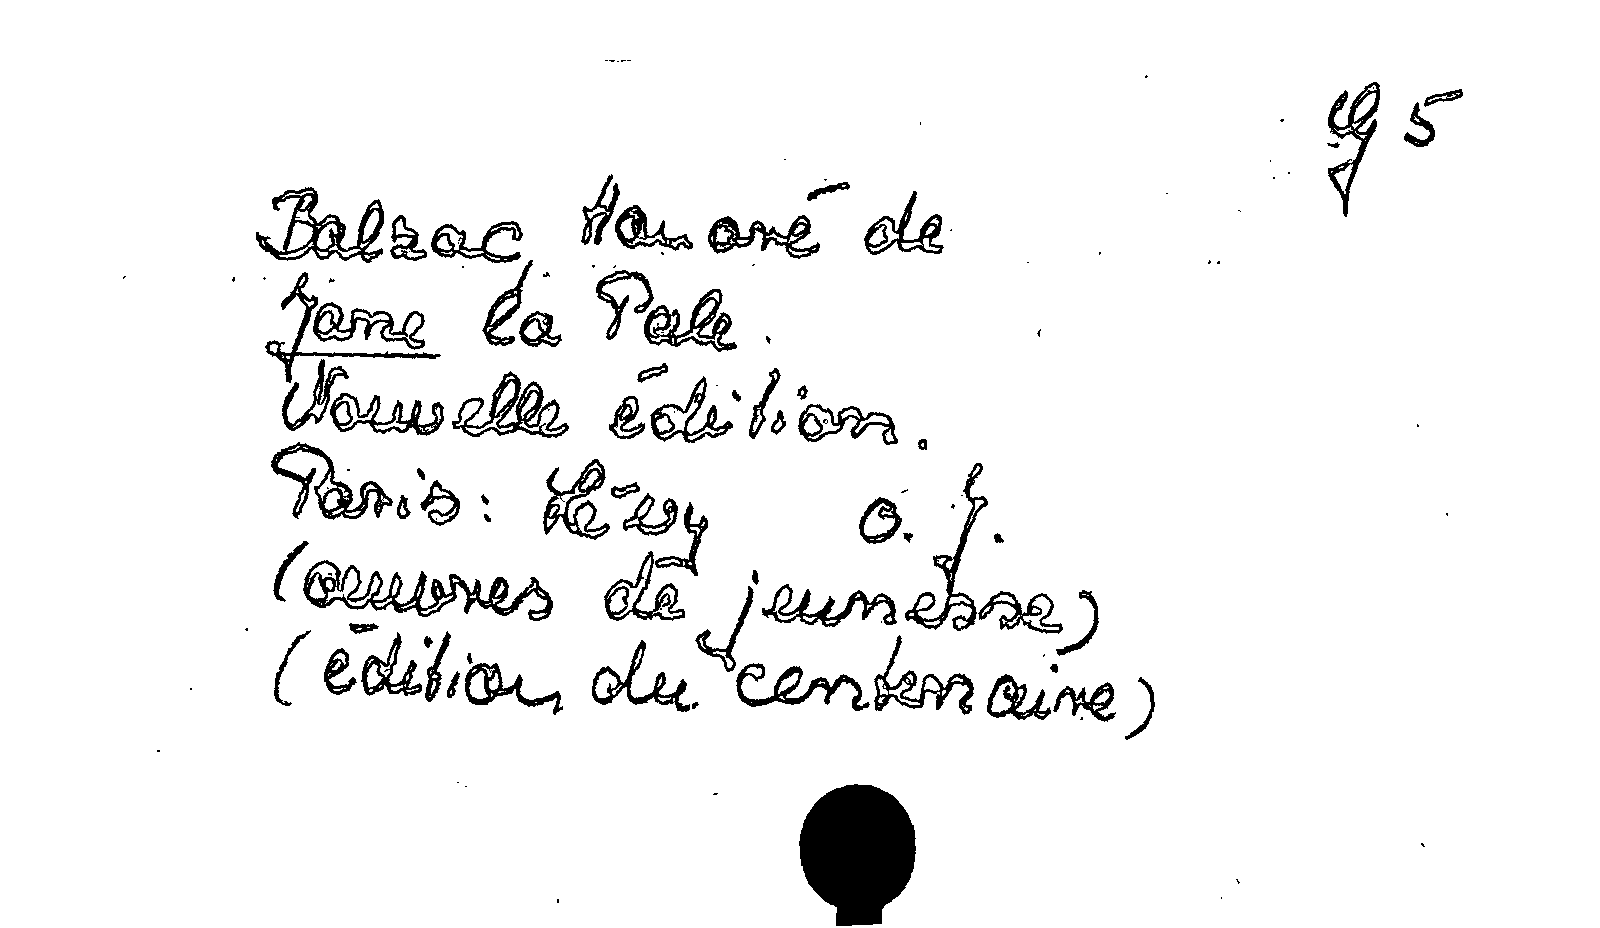 G 5
Balzac Honoré de
Jane la Pale.
Nouvelle édition.
Paris: Lévy o. J.
(œuvres de jeunesse)
(édition du centenaire)